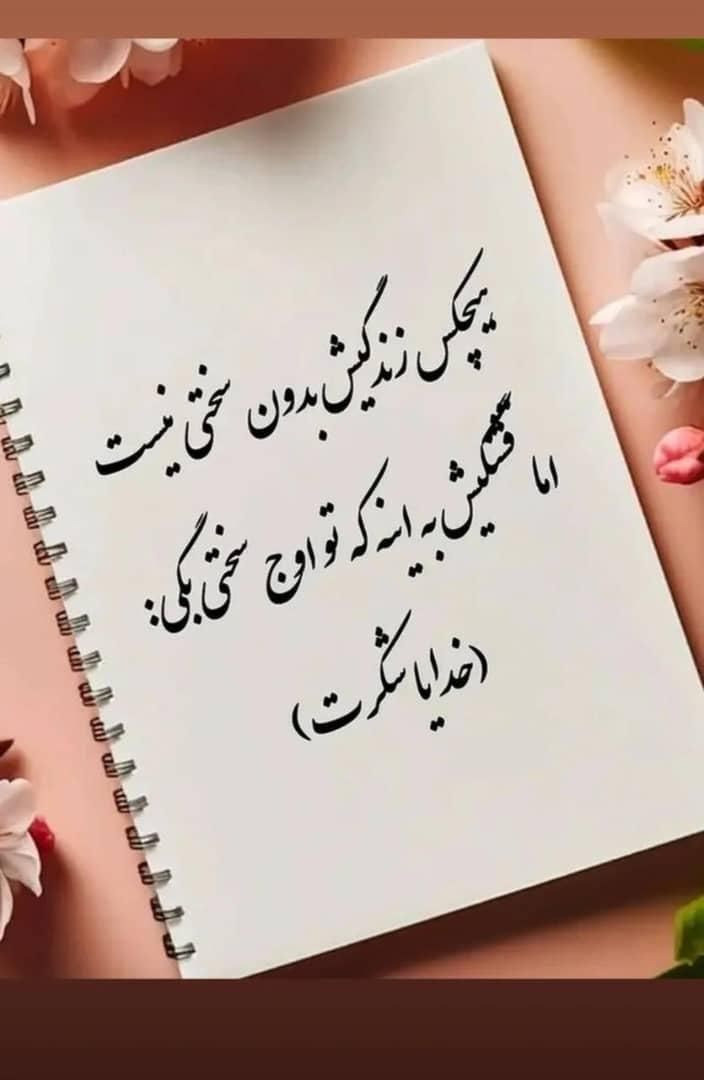 هیچکس زندگیش بدون سختی نیست
اما قشنگیش به اینه که تو اوج سختی بگی:
(خدایا شکرت)